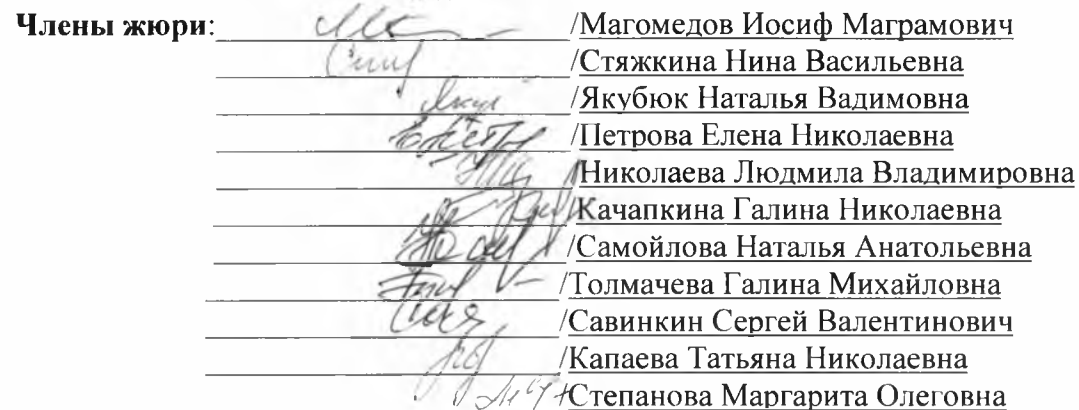 Члены жюри: /Магомедов Иосиф Маграмович
/Стяжкина Нина Васильевна
/Якубюк Наталья Вадимовна
/Петрова Елена Николаевна
/Николаева Людмила Владимировна
/Качапкина Галина Николаевна
/Самойлова Наталья Анатольевна
/Толмачева Галина Михайловна
/Савинкин Сергей Валентинович
/Капаева Татьяна Николаевна
/Степанова Маргарита Олеговна